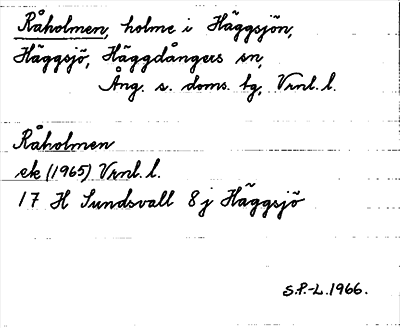 Råholmen, holme i Häggsjön,
Häggsjö, Häggdångers sn,
Ång. s. doms. tg, Vrnl. l.
Råholmen
ek (1965) Vrnl. l.
17 H Sundsvall 8 j Häggsjö
S.P.-L. 1966.